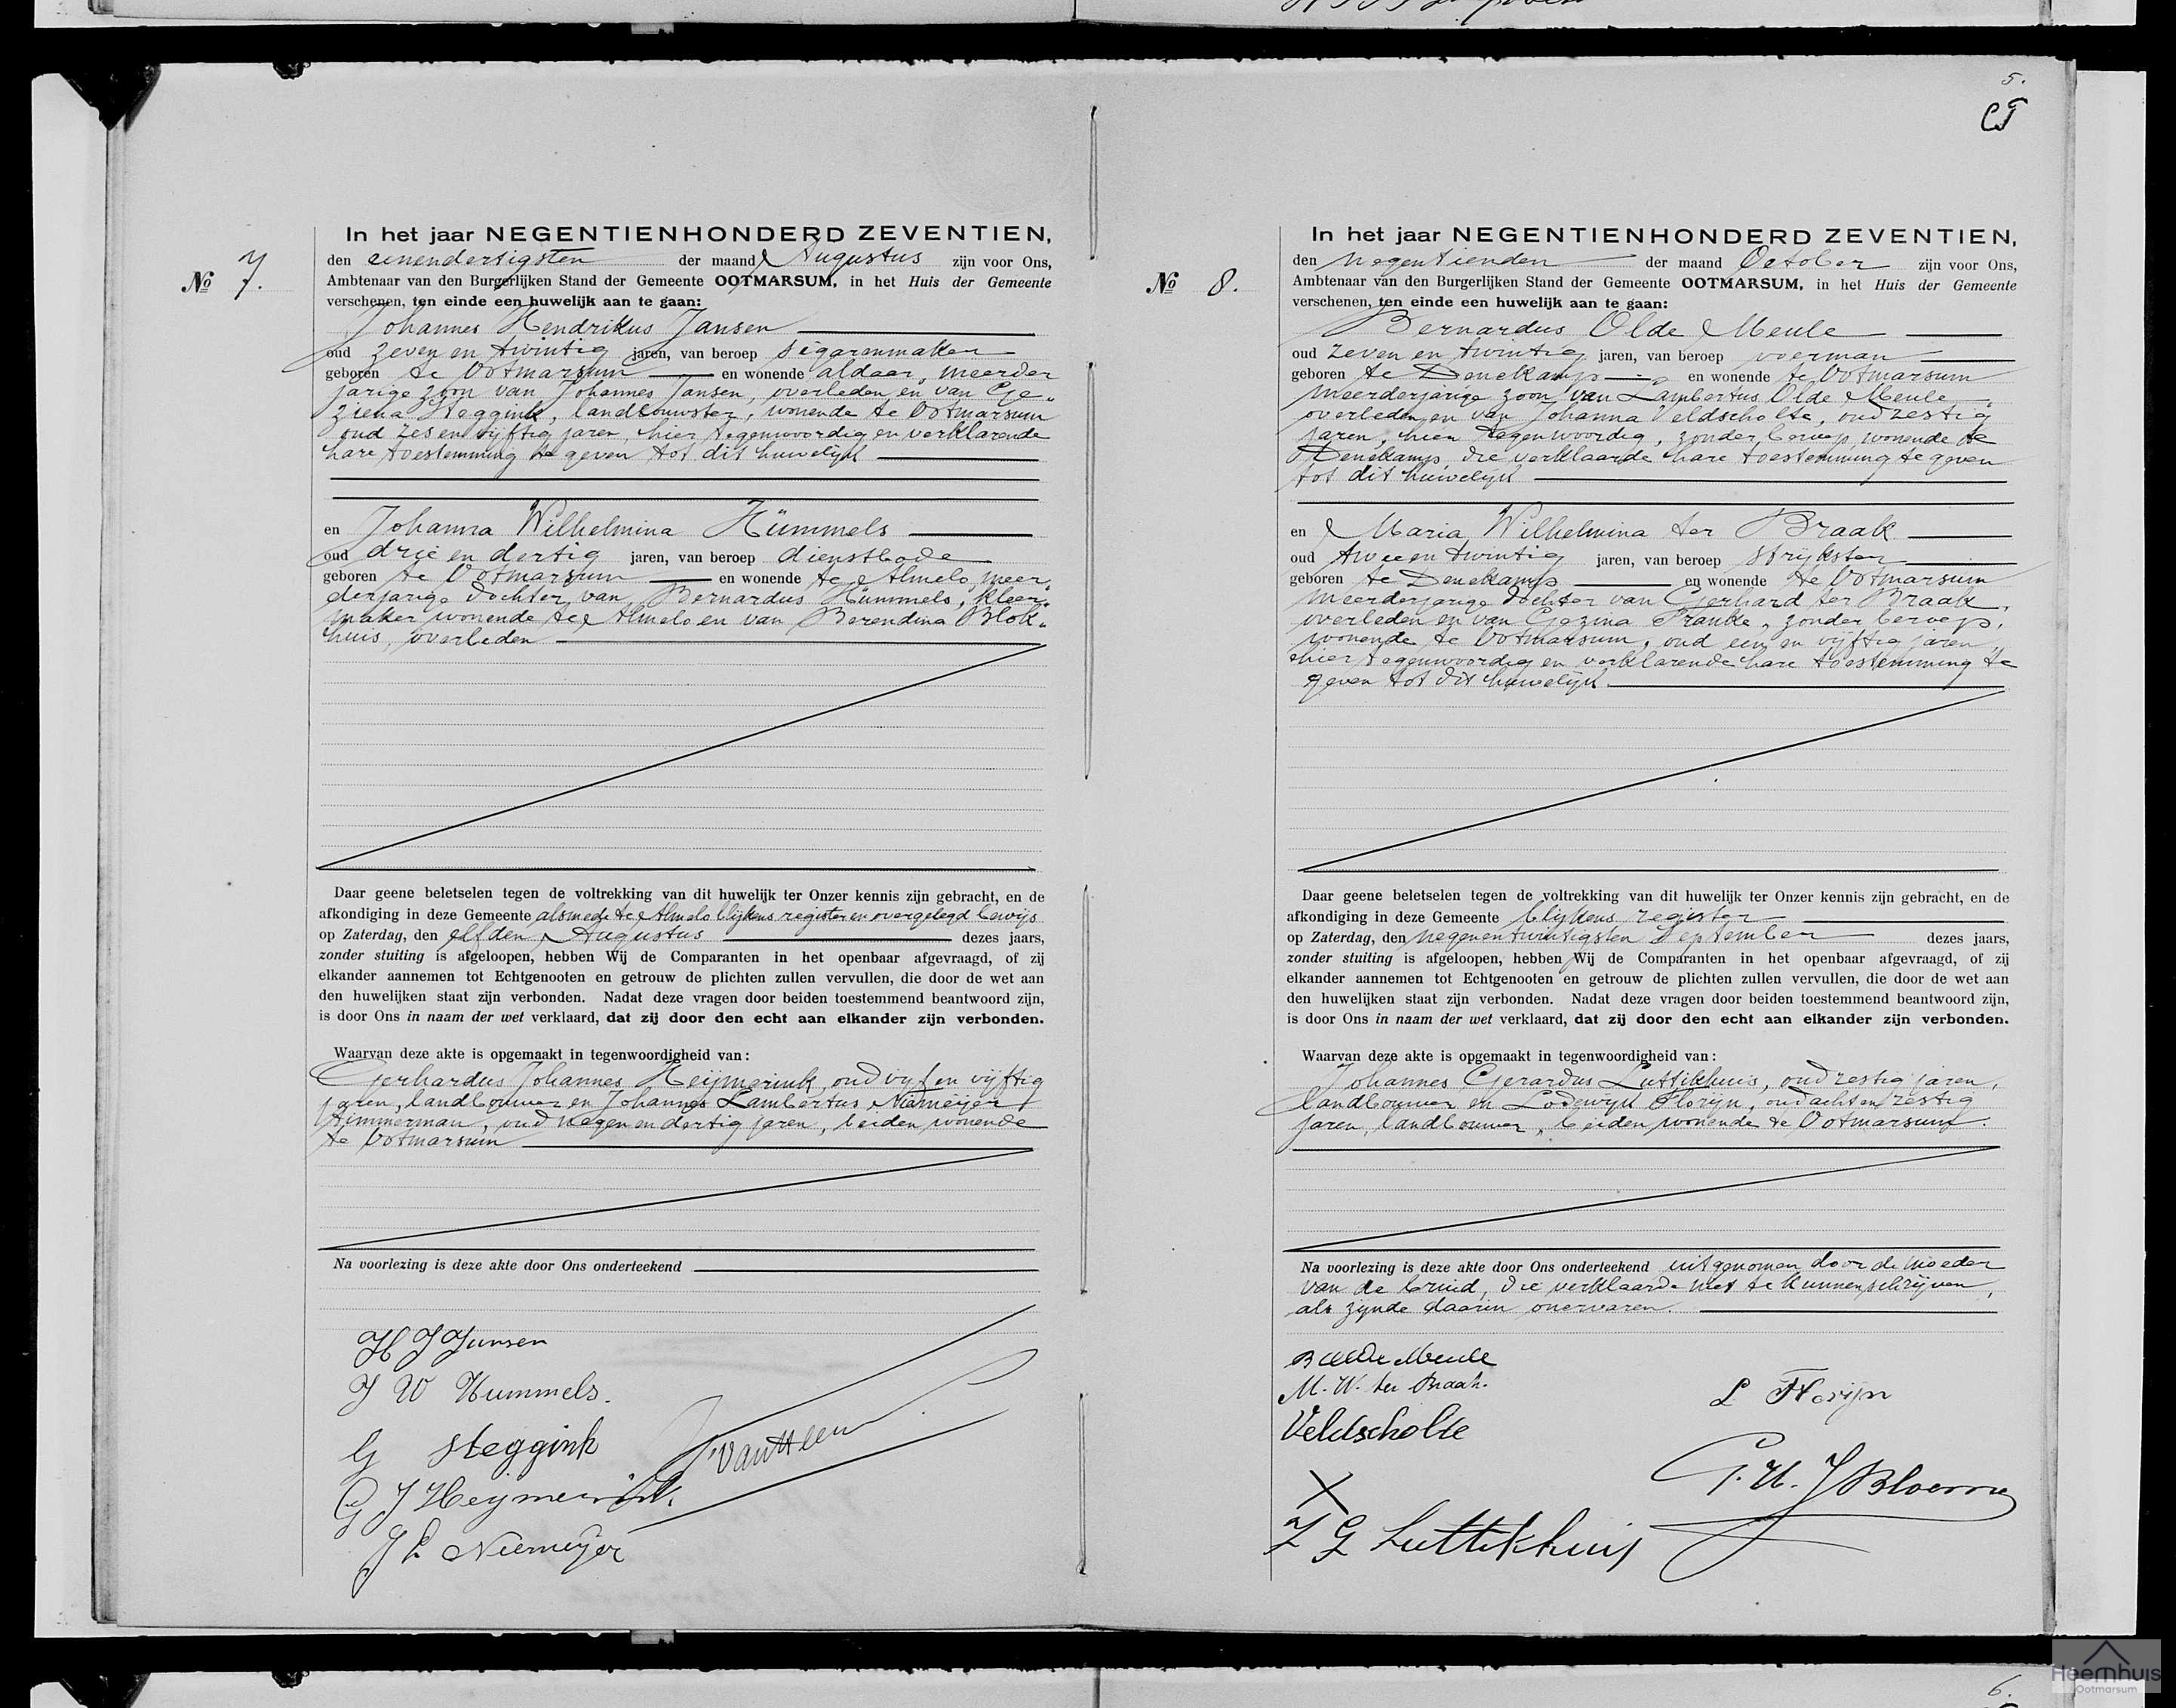 5.
No 7.
In het jaar NEGENTIENHONDERD ZEVENTIEN,
den eenendertigsten der maand Augustus zijn voor Ons,
Ambtenaar van den Burgerlijken Stand der Gemeente OOTMARSUM, in het Huis der Gemeente
verschenen, ten einde een huwelijk aan te gaan:
Johannes Hendrikus Jansen
oud zeven en twintig jaren, van beroep sigarenmaker
geboren te Ootmarsum en wonende aldaar, meerder
jarige zoon van Johannes Jansen, overleden en van Ge„
ziena Steggink, landbouwster, wonende te Ootmarsum
oud zes en vijftig jaren, hier tegenwoordig en verklarende
hare toestemming te geven tot dit huwelijk
en Johanna Wilhelmina Hümmels
oud drie en dertig jaren, van beroep dienstbode
geboren te Ootmarsum en wonende te Almelo, meer„
derjarige dochter van Bernardus Hümmels, kleer„
maker wonende te Almelo en van Berendina Blok„
huis, overleden
Daar geene beletselen tegen de voltrekking van dit huwelijk ter Onzer kennis zijn gebracht, en de
afkondiging in deze Gemeente alsmede te Almelo blijkens register en overgelegd bewijs
op Zaterdag, den elfden Augustus dezes jaars,
zonder stuiting is afgeloopen, hebben Wij de Comparanten in het openbaar afgevraagd, of zij
elkander aannemen tot Echtgenooten en getrouw de plichten zullen vervullen, die door de wet aan
den huwelijken staat zijn verbonden. Nadat deze vragen door beiden toestemmend beantwoord zijn,
is door Ons in naam der wet verklaard, dat zij door den echt aan elkander zijn verbonden.
Waarvan deze akte is opgemaakt in tegenwoordigheid van:
Gerhardus Johannes Heijmerink, oud vijf en vijftig
jaren, landbouwer en Johannes Lambertus Niemeijer
timmerman, oud negen en dertig jaren, beiden wonende
te Ootmarsum
Na voorlezing is deze akte door Ons onderteekend
H J Jansen
J W Hummels.
G Steggink
G J Heymerink.
J L Niemeyer
No 8.
In het jaar NEGENTIENHONDERD ZEVENTIEN,
den negentienden der maand October zijn voor Ons,
Ambtenaar van den Burgerlijken Stand der Gemeente OOTMARSUM, in het Huis der Gemeente
verschenen, ten einde een huwelijk aan te gaan:
Bernardus Olde Meule
oud zeven en twintig jaren, van beroep voerman
geboren te Denekamp en wonende te Ootmarsum
meerderjarige zoon van Lambertus Olde Meule
overleden en van Johanna Veldscholte, oud zestig
jaren, hier tegenwoordig, zonder beroep, wonende te
Denekamp, die verklaarde hare toestemming te geven
tot dit huwelijk
en Maria Wilhelmina ter Braak
oud twee en twintig jaren, van beroep strijkster
geboren te Denekamp en wonende te Ootmarsum
meerderjarige dochter van Gerhard ter Braak,
overleden en van Gezina Franke, zonder beroep,
wonende te Ootmarsum, oud een en vijftig jaren
hier tegenwoordig en verklarende hare toestemming te
geven tot dit huwelijk.
Daar geene beletselen tegen de voltrekking van dit huwelijk ter Onzer kennis zijn gebracht, en de
afkondiging in deze Gemeente blijkens register
op Zaterdag, den negenentwintigsten September dezes jaars,
zonder stuiting is afgeloopen, hebben Wij de Comparanten in het openbaar afgevraagd, of zij
elkander aannemen tot Echtgenooten en getrouw de plichten zullen vervullen, die door de wet aan
den huwelijken staat zijn verbonden. Nadat deze vragen door beiden toestemmend beantwoord zijn,
is door Ons in naam der wet verklaard, dat zij door den echt aan elkander zijn verbonden.
Waarvan deze akte is opgemaakt in tegenwoordigheid van:
Johannes Gerardus Luttikhuis, oud zestig jaren,
landbouwer en Lodewijk Florijn, oud achten zestig
jaren, landbouwer, beiden wonende te Ootmarsum.
Na voorlezing is deze akte door Ons onderteekend uitgenomen door de moeder
van de bruid, die verklaarde niet te kunnen schrijven,
als zijnde daarin onervaren.
B Olde Meule
M. W. ter Braak.
L Florijn
Veldscholte
X
J G Luttikhuis
Heemhuis
Ootmarsum
6.